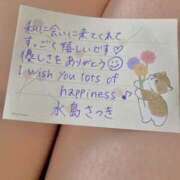 私に会いに来てくれて
す。ごく嬉しいです♡
優しさをありがとう☺
I wish you lots of
happiness♪
水島さつき